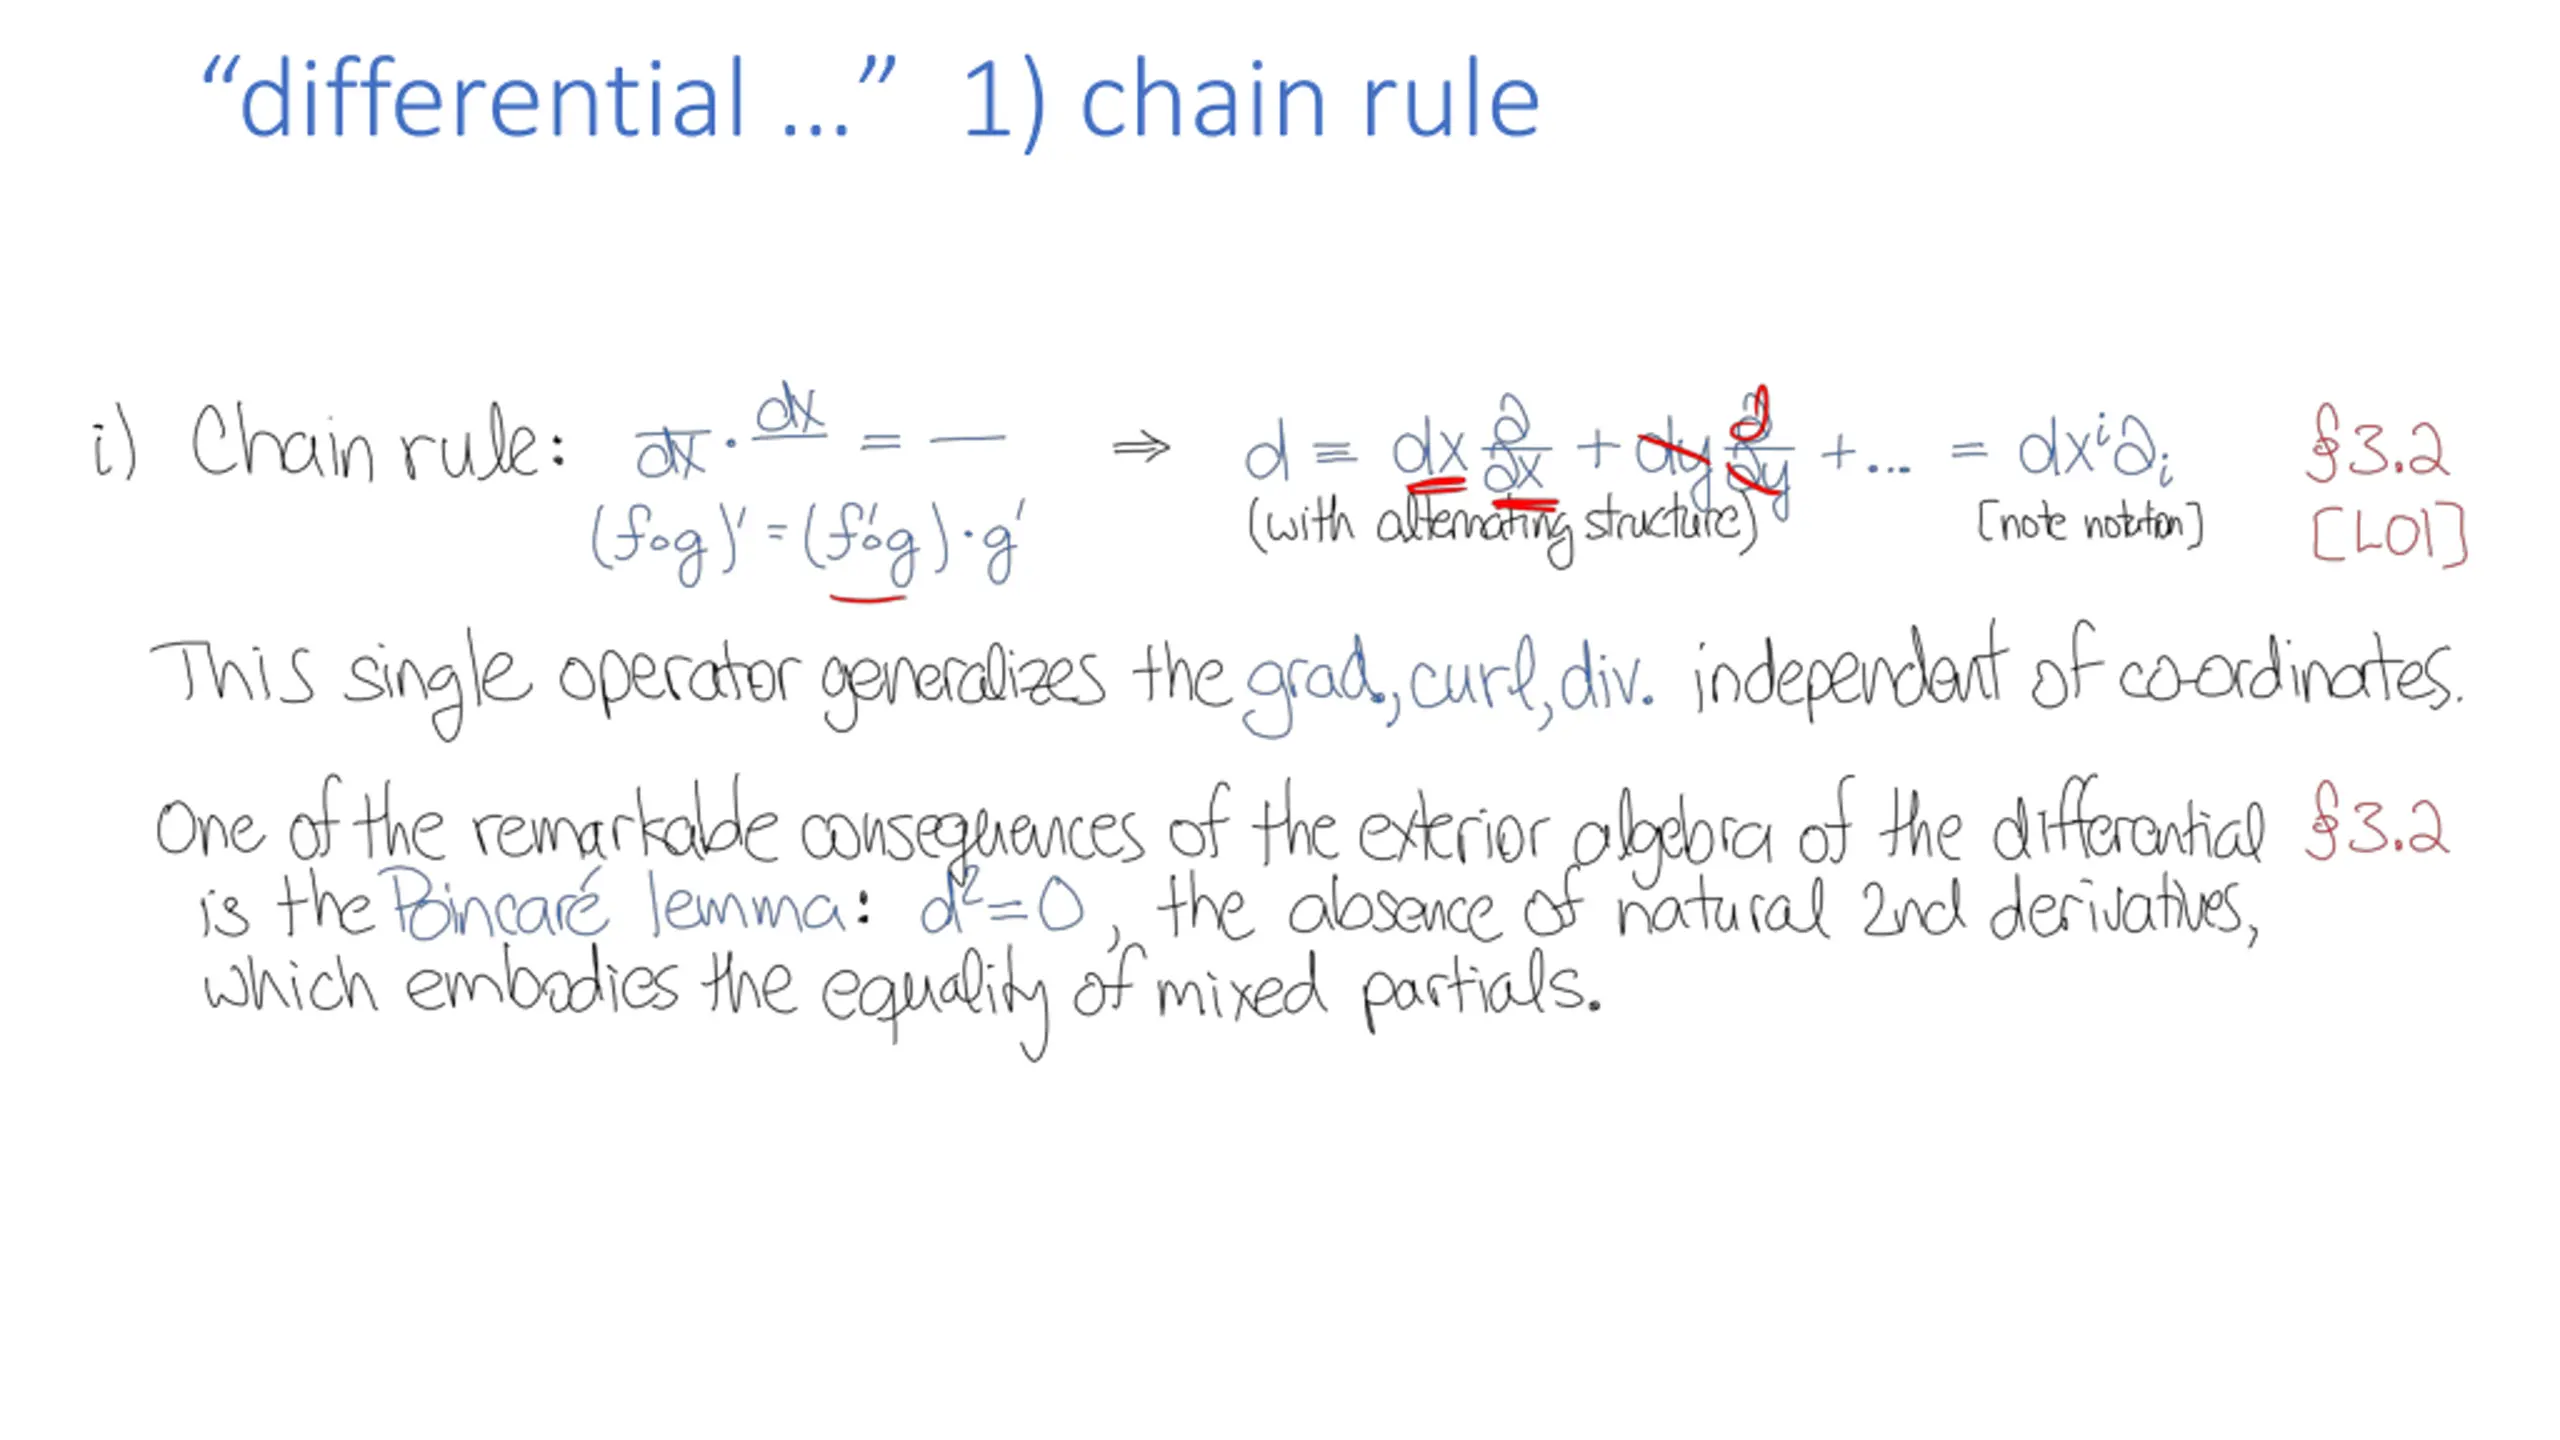 “differential ...” 1) chain rule
i) Chain rule: —/dx · dx/— = — ⇒ d ≡ dx ∂/∂x + dy ∂/∂y + ... = dxⁱ∂ᵢ §3.2
(f∘g)' = (f'∘g)·g' (with alternating structure) [note notation] [L01]
This single operator generalizes the grad., curl, div. independent of co-ordinates.
One of the remarkable consequences of the exterior algebra of the differential §3.2
is the Poincaré lemma: d²=0, the absence of natural 2nd derivatives,
which embodies the equality of mixed partials.